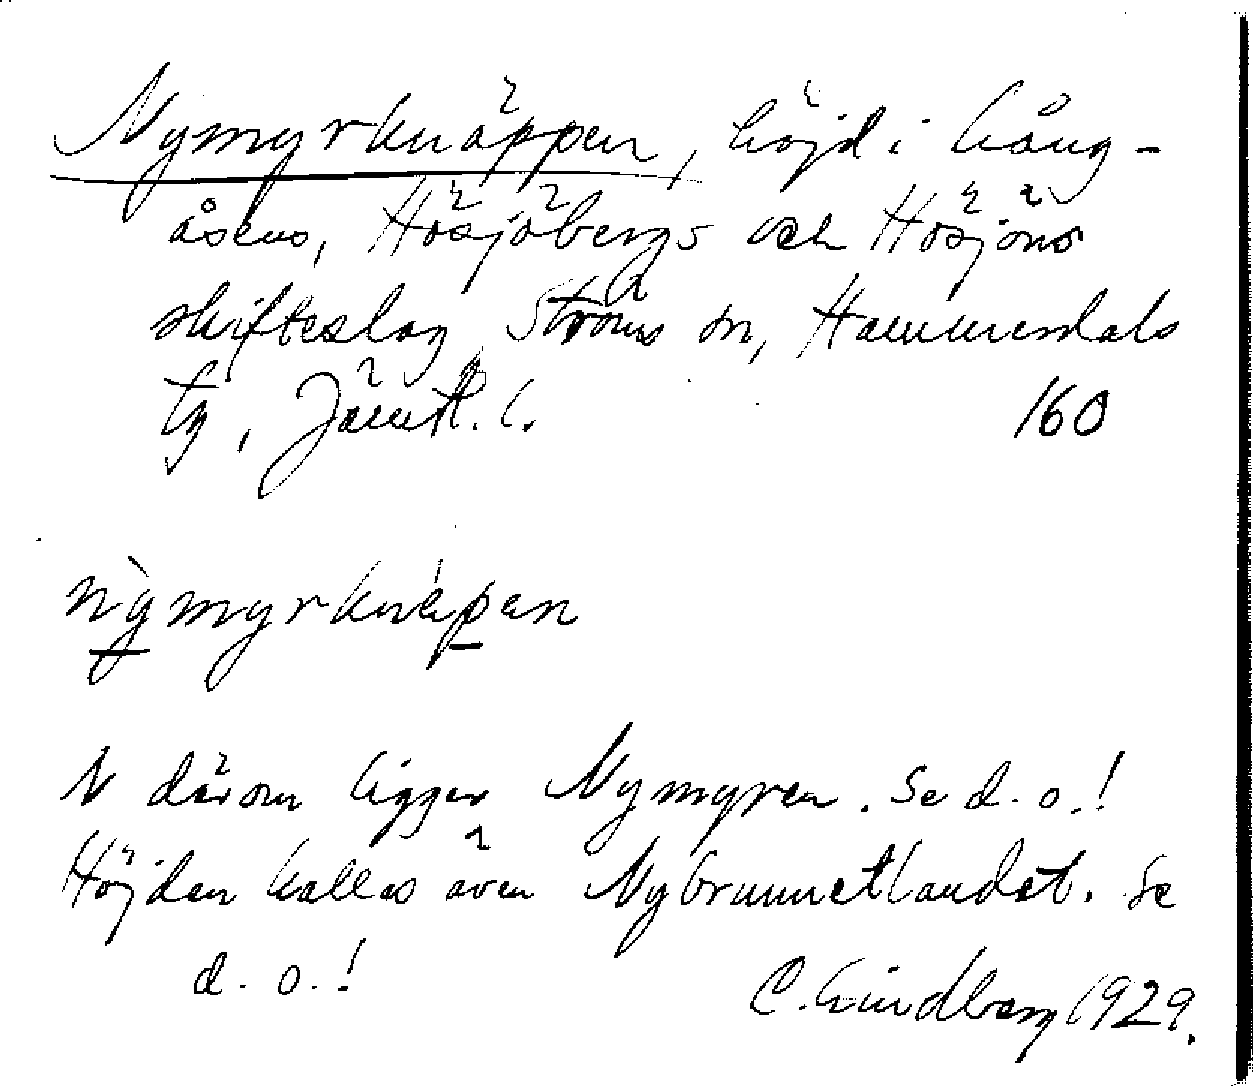 Nymyrknäppen, höjd i Lång-
åsens, Hösjöbergs och Hösjöns
skifteslag, Ströms sn, Hammerdals
tg, Jämtl. l. 160
nỳmyrknépen
N därom ligger Nymyren. Se d. o.!
Höjden kallas även Nybrunnetlandet. Se
d. o.! C. Lindberg 1929.